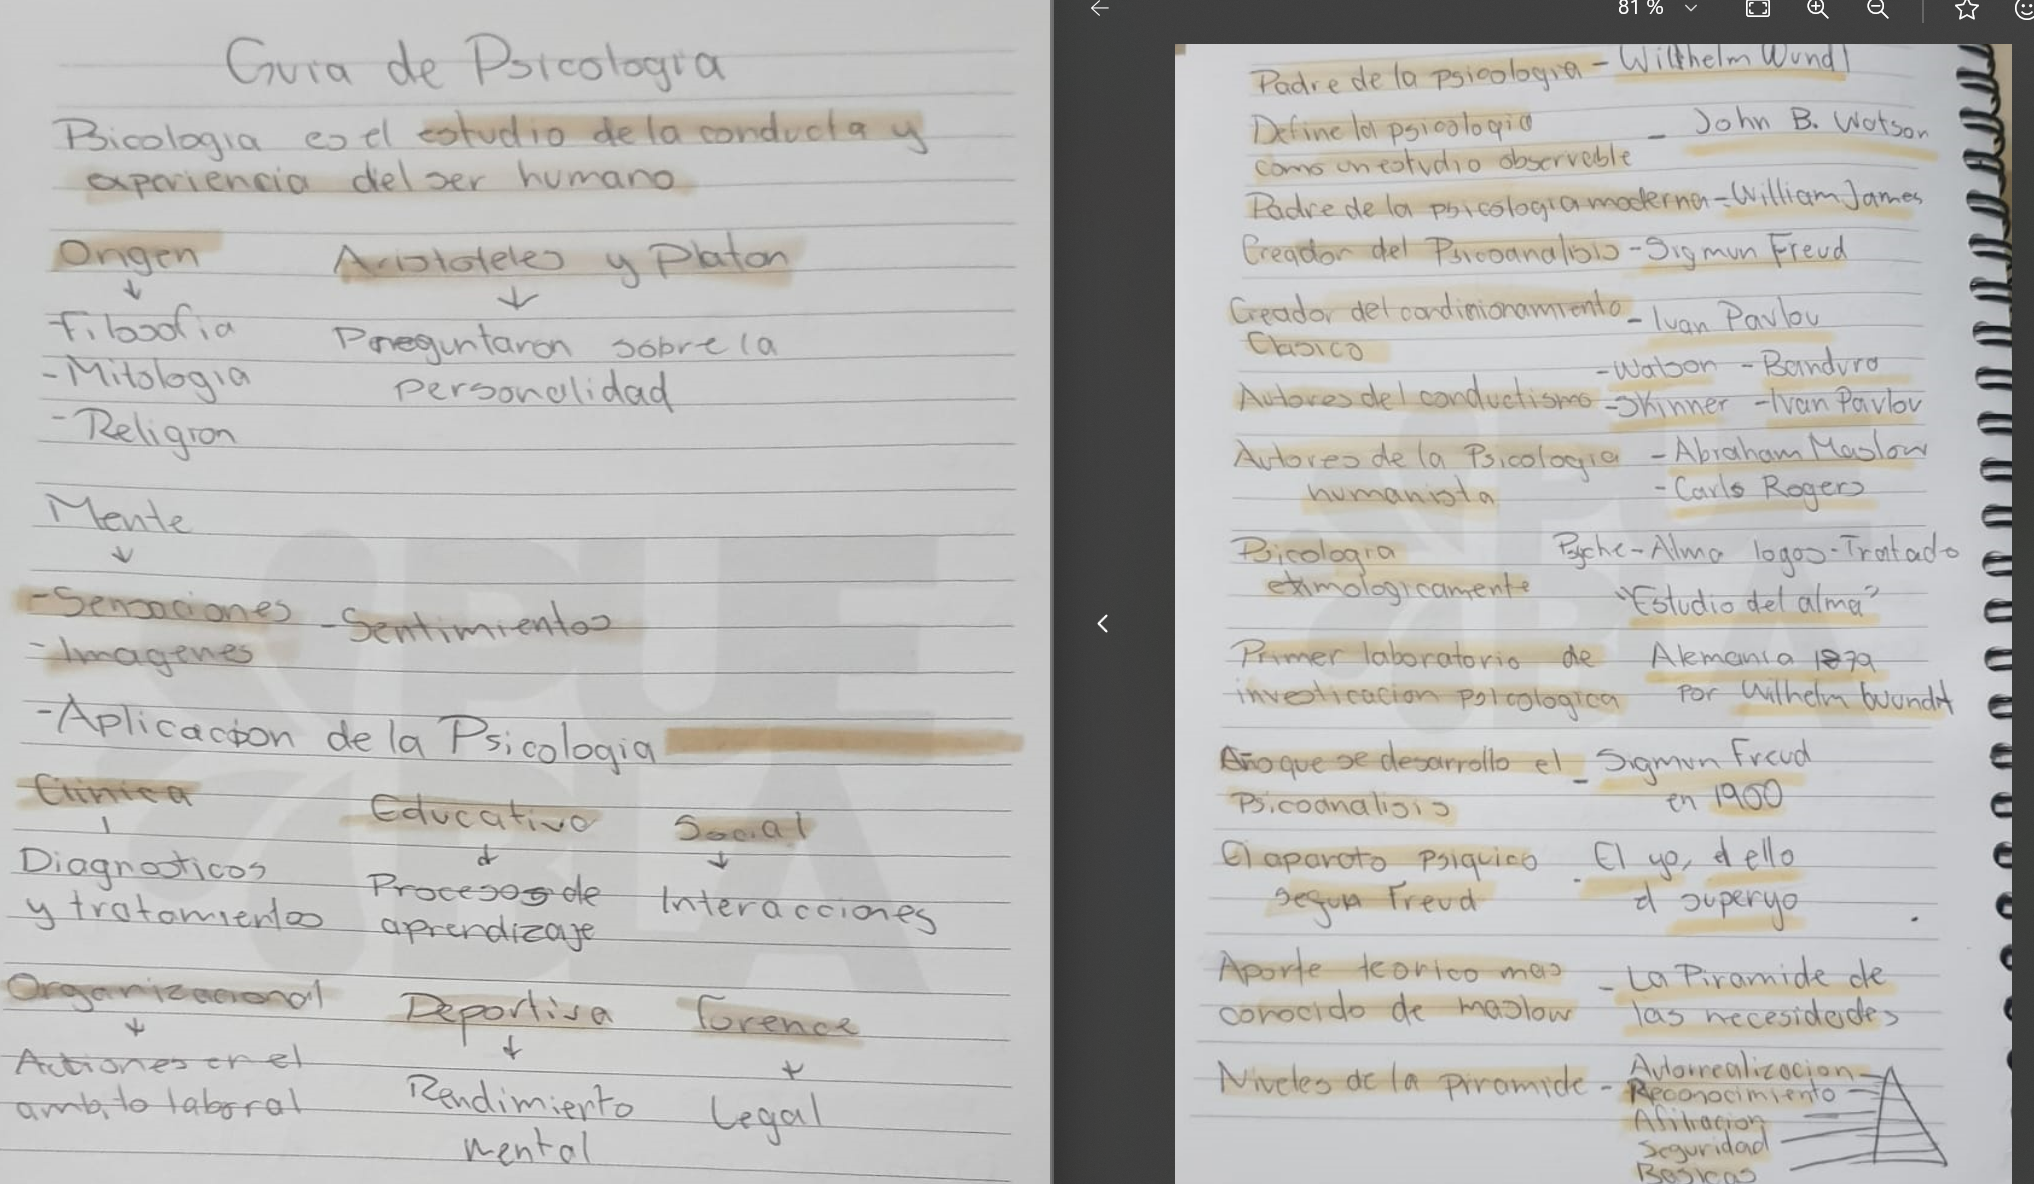 Guia de Psicologia
Psicologia es el estudio de la conducta y
experiencia del ser humano
Origen
Filosofia
-Mitologia
-Religion
Aristoteles y Platon
Preguntaron sobre la
personalidad
Mente
-Sensaciones -Sentimientos
-Imagenes
-Aplicacion de la Psicologia
Clinica
Diagnosticos
y tratamientos
Educativo
Procesos de
aprendizaje
Social
Interacciones
Organizacional
Actiones en el
ambito laboral
Deportiva
Rendimiento
mental
Forence
Legal
81 %
Padre de la psicologia - Wilhelm Wundt
Define la psicologia
como un estudio observable - John B. Watson
Padre de la psicologia moderna - William James
Creador del Psicoanalisis - Sigmun Freud
Creador del condicionamiento
Clasico - Ivan Pavlov
Autores del conductismo
-Watson -Bandura
-Skinner -Ivan Pavlov
Autores de la Psicologia
humanista
- Abraham Maslow
- Carls Rogers
Psicologia
etimologicamente
Psyche-Alma logos-Tratado
"Estudio del alma"
Primer laboratorio de
investicacion psicologica
Alemania 1879
por Wilhelm Wundt
Año que se desarrollo el
Psicoanalisis
- Sigmun Freud
en 1900
El aparato psiquico
segun Freud
- El yo, el ello
el superyo
Aporte teorico mas
conocido de maslow
- La Piramide de
las necesidades
Niveles de la piramide -
Autorrealizacion
Reconocimiento
Afiliacion
Seguridad
Basicas
PUE
BLA
PUE
BLA